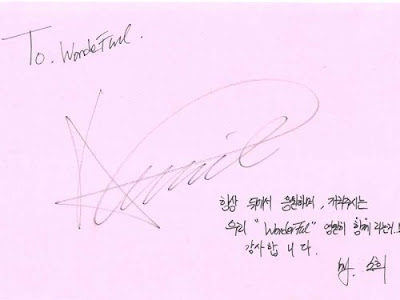 To. WondeFul.
항상 뒤에서 응원하며, 지켜주시는
우리 "WonderFul" 영원히 함께
감사합니다.
by. 소희